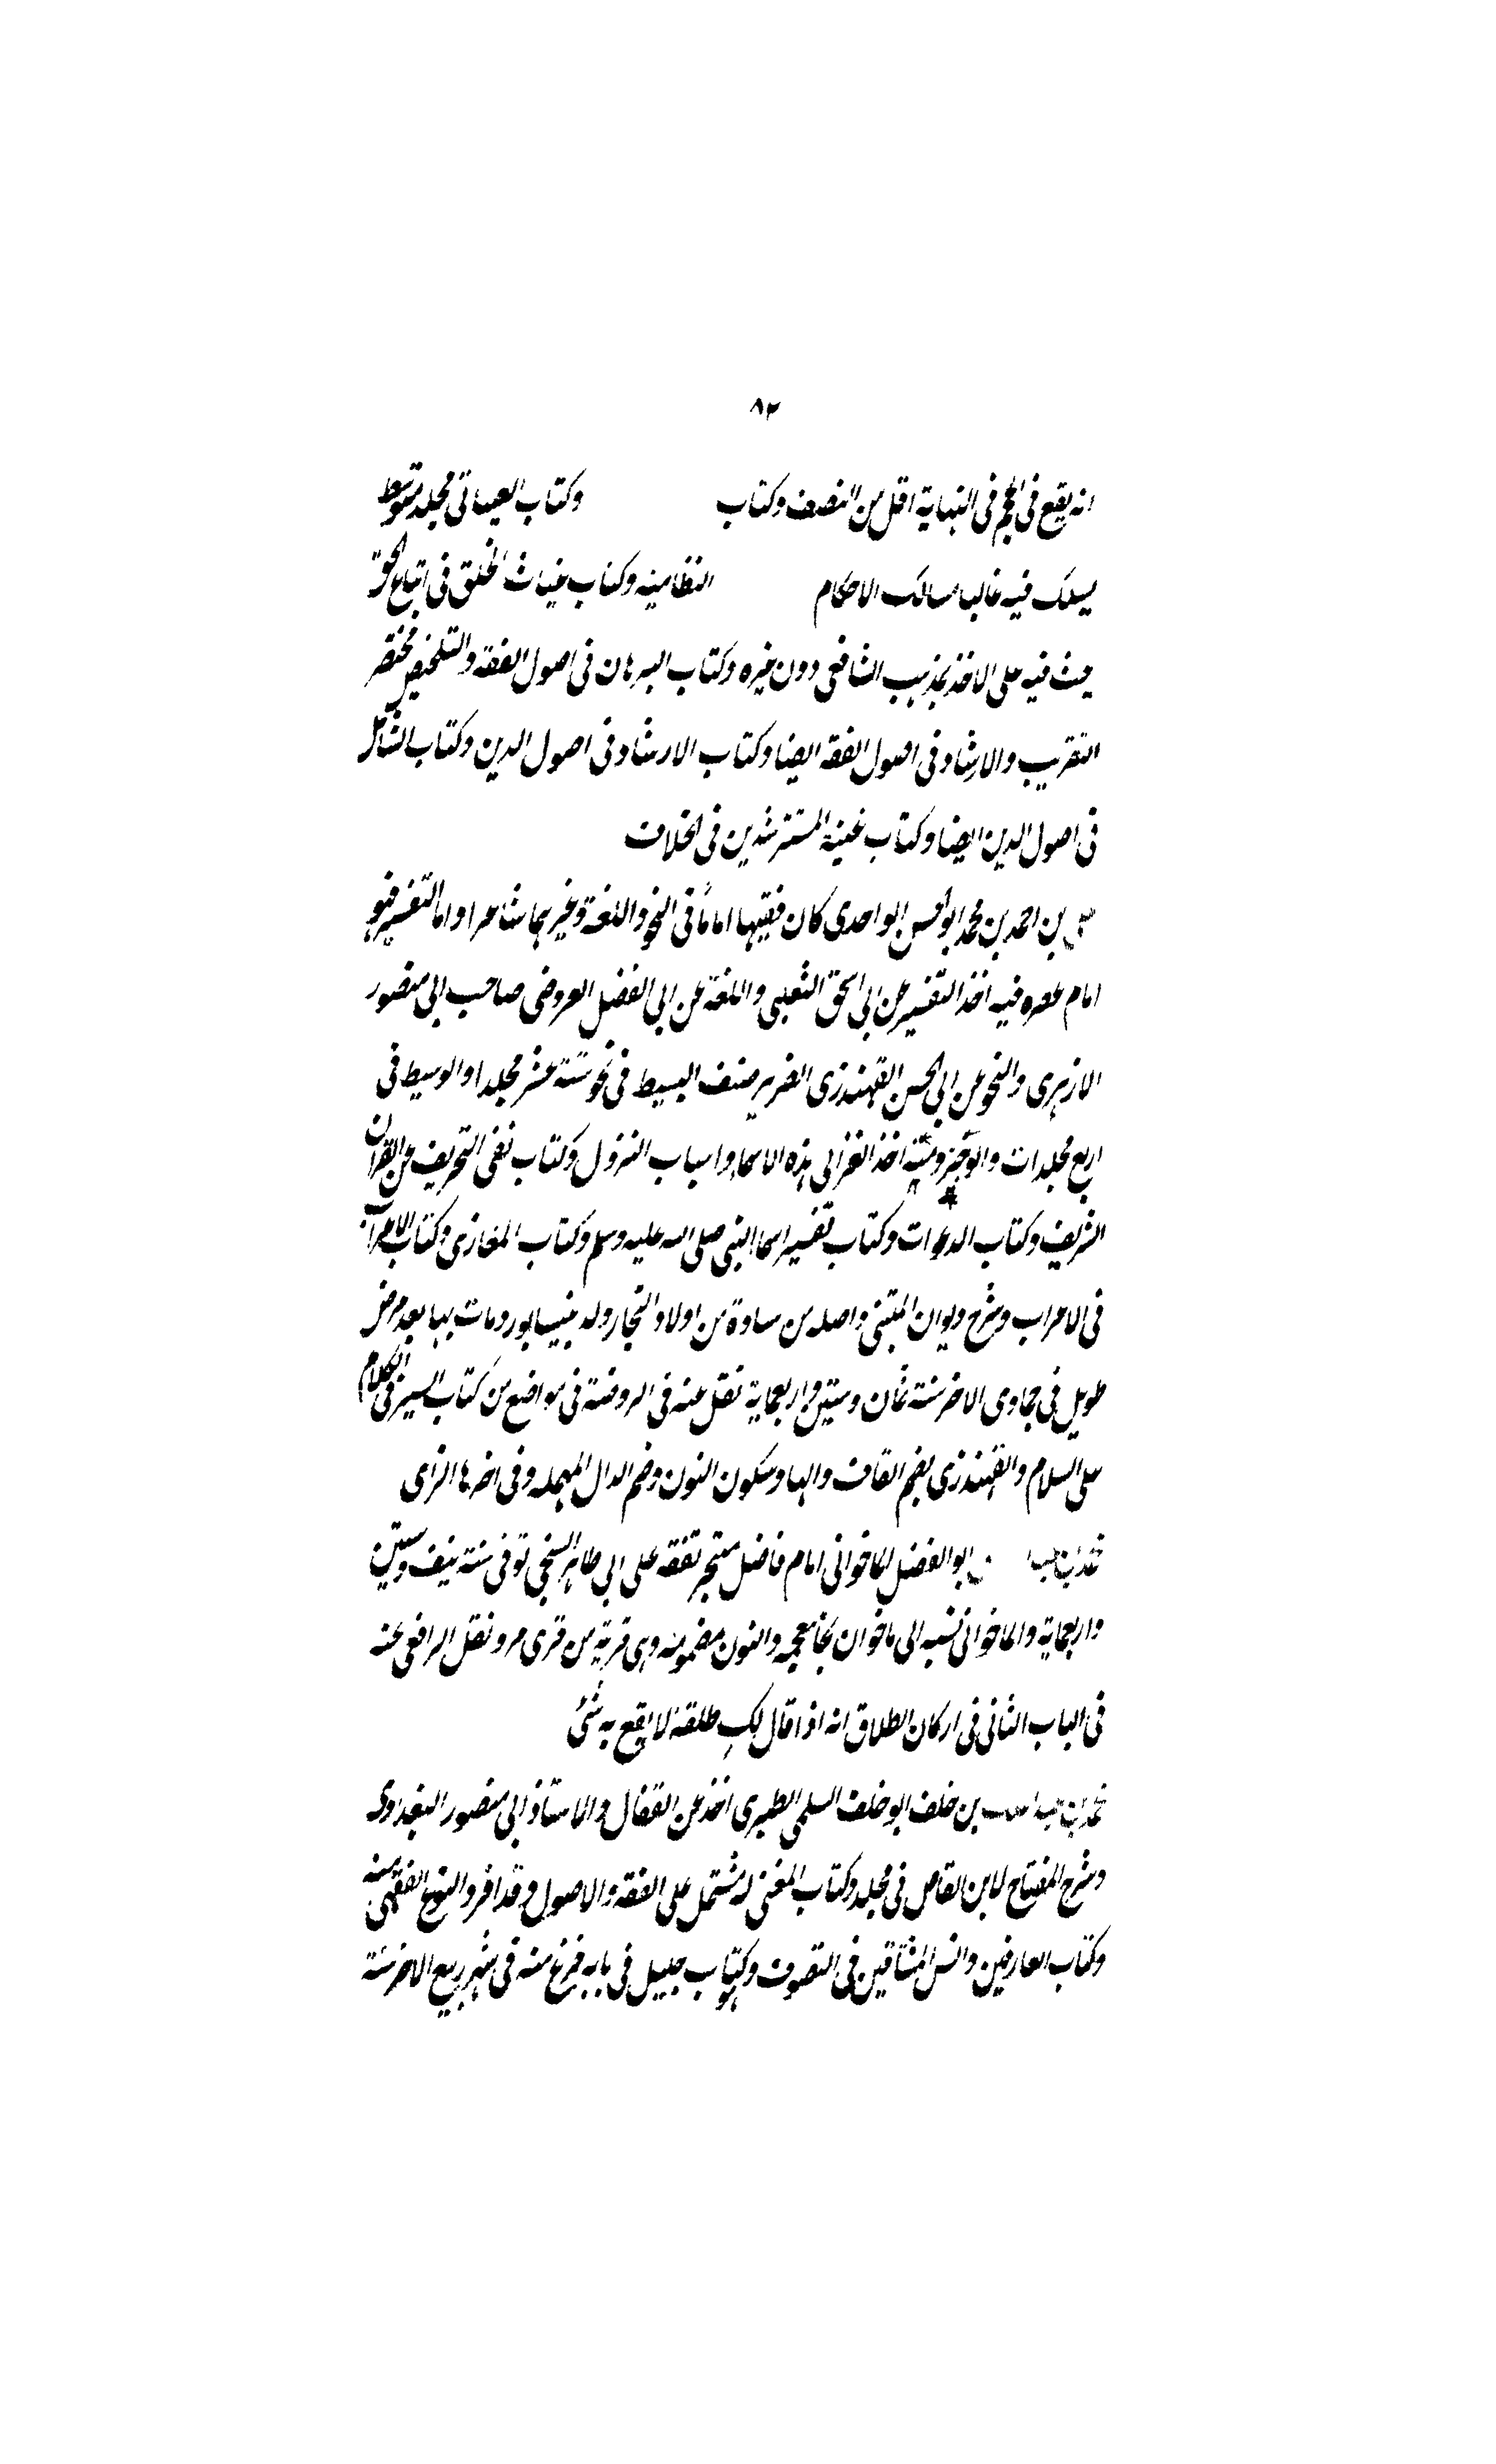 ٨٢
انه يقع فى الحجم فى النهاية اقل من النصف وكتاب وكتاب الغياثى مجلد متوسط
يسلك فيه غالبا مسالك الاحكام النظامية وكتاب غياث الخلق فى اتباع الحق
يحث فيه على الاخذ بمذهب الشافعى دون غيره وكتاب البرهان فى اصول الفقه والتلخيص مختصر
التقريب والارشاد فى اصول الفقه ايضا وكتاب الارشاد فى اصول الدين وكتاب الشامل
فى اصول الدين ايضا وكتاب غنية المسترشدين فى الخلاف
على بن احمد بن محمد ابو الحسن الواحدى كان فقيها اماماً فى النحو واللغة وغيرهما شاعرا واما التفسير فهو
امام عصره فيه اخذ التفسير عن ابى اسحق الثعلبى واللغة عن ابى الفضل العروضى صاحب ابى منصور
الازهرى والنحو عن ابى الحسن القهندزى الضرير صنف البسيط فى نحو ستة عشر مجلدا والوسيط فى
اربع مجلدات والوجيز ومنه اخذ الغزالى هذه الاسماء واسباب النزول وكتاب نفى التحريف عن القرآن
الشريف وكتاب الدعوات وكتاب تفسير اسما النبى صلى الله عليه وسلم وكتاب المغازى وكتاب الاعراب
فى الاعراب وشرح ديوان المتنبى واصله من ساوة من اولاد التجار ولد بنيسابور ومات بها بعد مرض
طويل فى جمادى الاخر سنة ثمان وستين واربعماية نقل عنه فى الروضة فى مواضع من كتاب السير فى الكلام
على السلام والقهندزى بضم القاف والها وسكون النون وضم الدال المهمله وفى اخرها الزاى
ابو الفضل الماخوانى امام فاضل متبحر تفقه على ابى طاهر السنجى توفى سنة نيف وستين
واربعماية والماخوانى نسبه الى ماخوان بخا معجمه والنون مضمومه وهى قرية من قرى مرو نقل الرافعى عنه
فى الباب الثانى فى اركان الطلاق انه اذا قال لكِ طلقة لا يقع به شئ
محمد بن عبد الملك بن خلف ابو خلف السلمى الطبرى اخذ عن القفال والاستاذ ابى منصور البغدادى
وشرح المفتاح لابن القاص فى مجلد وكتاب المغنى له مشتمل على الفقه والاصول وقد افرد النوع الفقهى منه
وكتاب العارفين وانس المشتاقين فى التصوف وهو كتاب جليل فى بابه فرغ منه فى شهر ربيع الاخر سنة